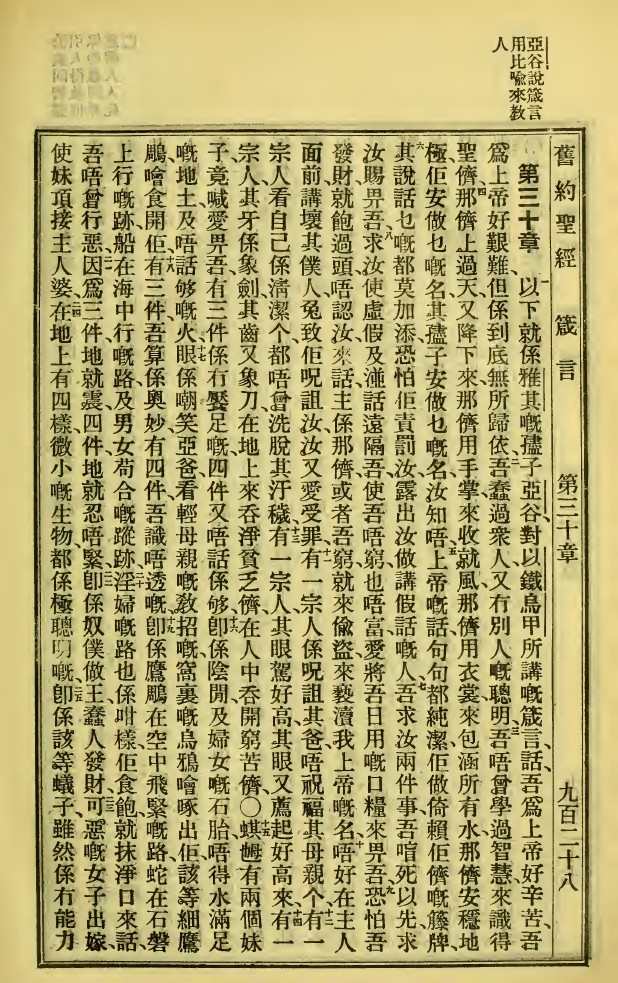 亞谷說箴言
用比喩來教
人
舊約聖經　箴言　第三十章　九百二十八
第三十章　以下就係雅其嘅孻子亞谷對以鐵烏甲所講嘅箴言話吾爲上帝好辛苦吾
爲上帝好艱難但係到底無所歸依二吾蠢過衆人又冇別人嘅聰明三吾唔曾學過智慧來識得
聖儕四那儕上過天又降下來那儕用手掌來收就風那儕用衣裳來包涵所有水那儕安穩地
極佢安做乜嘅名其孻子安做乜嘅名汝知唔五上帝嘅話句句都純潔佢做倚賴佢儕嘅籐牌
六其說話乜嘅都莫加添恐怕佢責罰汝露出汝做講假話嘅人七吾求汝兩件事吾喧死以先求
汝賜畀吾八求汝使虛假及湩話遠隔吾使吾唔窮也唔富愛將吾日用嘅口糧來畀吾九恐怕吾
發財就飽過頭唔認汝來話主係那儕或者吾窮就來偸盜來褻瀆我上帝嘅名十唔好在主人
面前講壞其僕人免致佢呪詛汝汝又愛受罪十一有一宗人係呪詛其爸唔祝福其母親个十二有一
宗人看自己係淸潔个都唔曾洗脫其汙穢十三有一宗人其眼駕好高其眼又薦起好高來十四有一
宗人其牙係象劍其齒又象刀在地上來呑淨貧乏儕在人中呑開窮苦儕〇十五蜞乸有兩個妹
子竟喊愛畀吾有三件係冇饜足嘅四件又唔話係够十六卽係陰間及婦女嘅石胎唔得水滿足
嘅地土及唔話够嘅火十七眼係嘲笑亞爸看輕母親嘅敎招嘅窩裏嘅烏鴉噲啄出佢該等細鷹
鵰噲食開佢十八有三件吾算係奧妙有四件吾識唔透嘅十九卽係鷹鵰在空中飛緊嘅路蛇在石磐
上行嘅跡船在海中行嘅路及男女苟合嘅蹤跡二十淫婦嘅路也係咁樣佢食飽就抹淨口來話
吾唔曾行惡二一因爲三件地就震四件地就忍唔緊二二卽係奴僕做王蠢人發財二三可惡嘅女子出嫁
使妹頂接主人婆二四在地上有四樣微小嘅生物都係極聰明嘅二五卽係該等蟻子雖然係冇能力